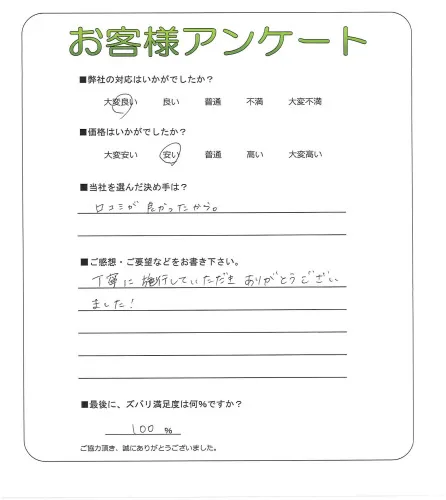 お客様アンケート
■弊社の対応はいかがでしたか？
大変良い 良い 普通 不満 大変不満
■価格はいかがでしたか？
大変安い 安い 普通 高い 大変高い
■当社を選んだ決め手は？
口コミが良かったから。
■ご感想・ご要望などをお書き下さい。
丁寧に施行していただきありがとうござい
ました！
■最後に、ズバリ満足度は何%ですか？
100 %
ご協力頂き、誠にありがとうございました。